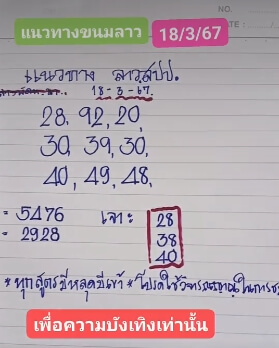 NO.
DATE :
แนวทางขนมลาว 18/3/67
แนวทาง ลาวสปป.
18-3-67.
28, 92, 20,
30, 39, 30,
40, 49, 48,
= 5476 เจาะ: 28
= 2928 38
40
*ทุกสูตรมีหลุดมีเข้า*โปรดใช้วิจารณญาณในการ
เพื่อความบันเทิงเท่านั้น